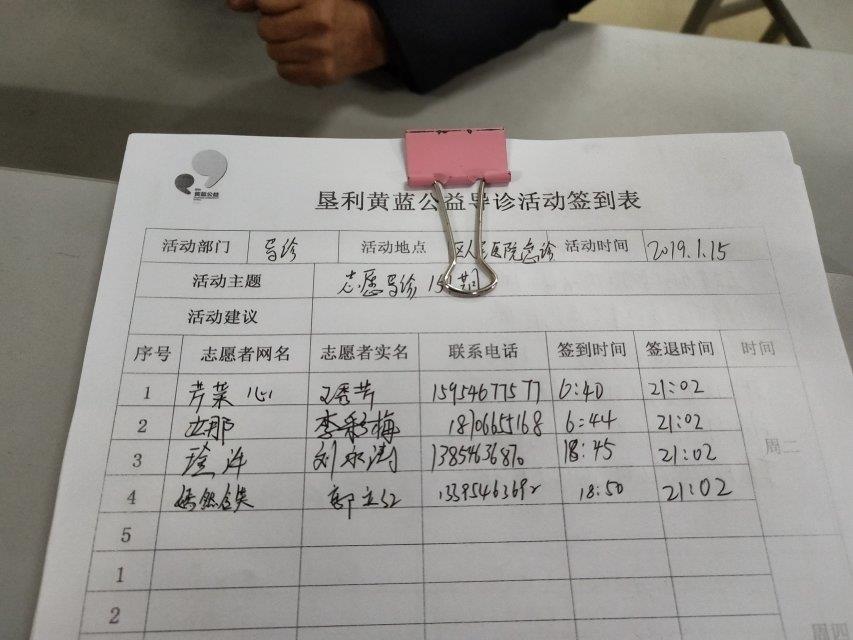 黄蓝公益
垦利黄蓝公益导诊活动签到表
活动部门 导诊 活动地点 区人民医院急诊 活动时间 2019.1.15
活动主题 志愿导诊
活动建议
序号 志愿者网名 志愿者实名 联系电话 签到时间 签退时间 时间
1 芹菜心 王秀芹 15954677577 6:40 21:02
2 李彩梅 18706655168 6:44 21:02
3 刘永涛 13854636870 18:45 21:02
周二
4 郭立红 13395463692 18:50 21:02
5
1
2
周四